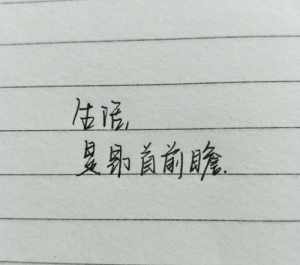 生活,
是昂首前瞻.